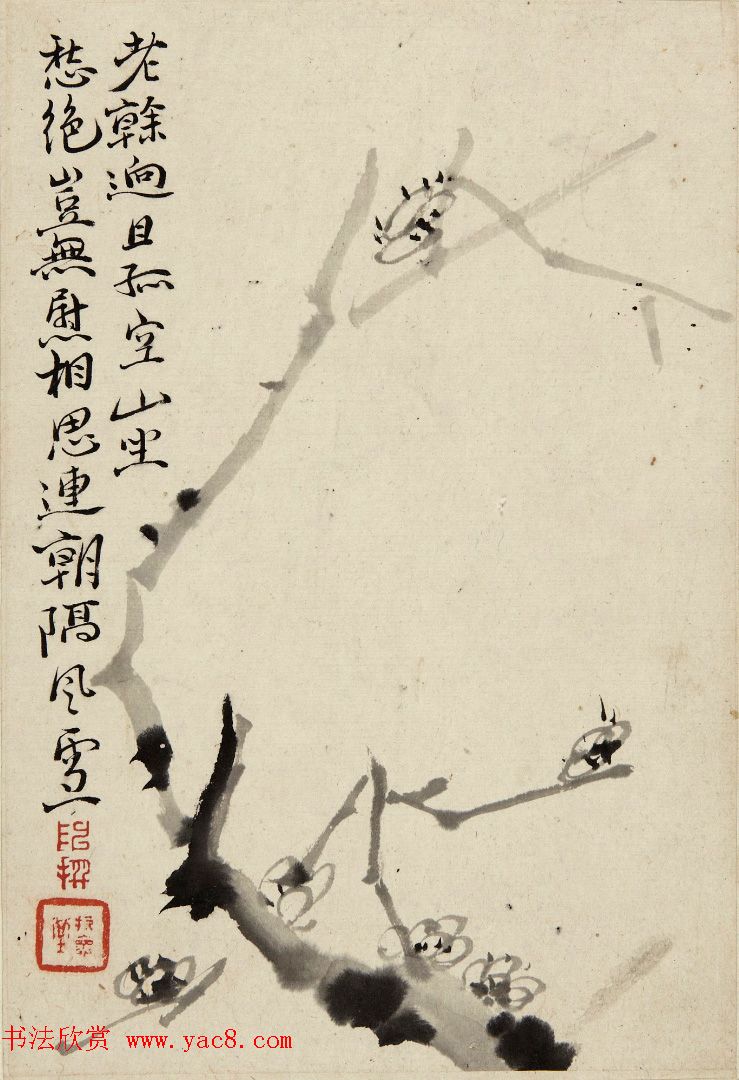 老榦逈且孤空山坐
愁絶豈無慰相思連朝隔風雪
书法欣赏 www.yac8.com